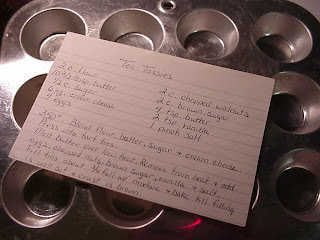 Tea Tassies
2 c. flour
1/2 c. sugar
6 oz. cream cheese
4 eggs
2 c. chopped walnuts
2 c. brown sugar
4 Tbsp. butter
2 tsp. vanilla
1 pinch salt
350° Blend flour, butter, sugar + cream cheese.
Press into tart tins.
Melt butter over low heat. Remove from heat + add
eggs, chopped nuts, brown sugar, vanilla + salt.
Fill tins about 3/4 full w/ mixture + bake till filling
is well set + crust is brown.